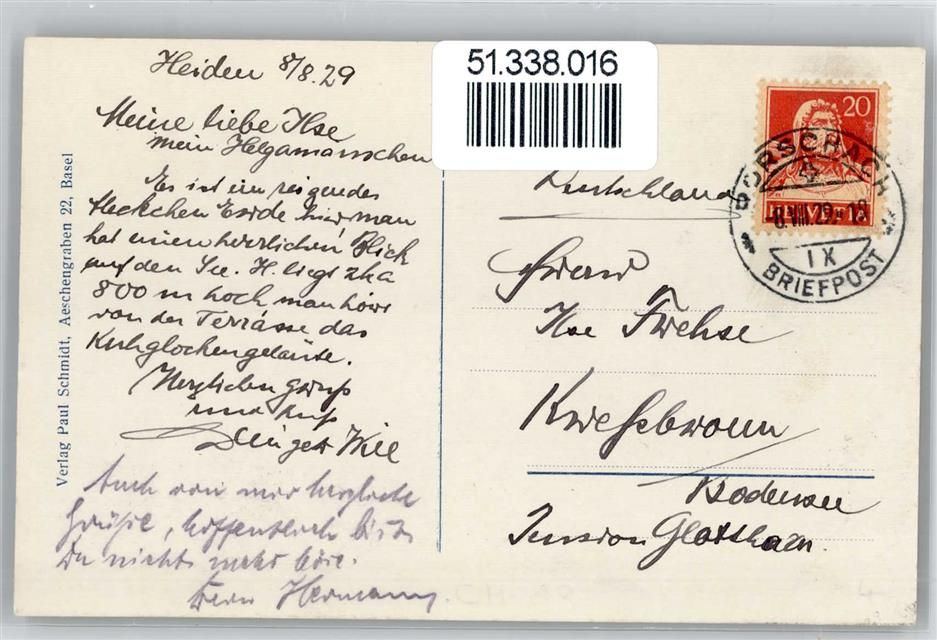 51.338.016
Heiden 8/8.29
Meine liebe Ilse
mein Helgamännchen
Es ist ein reizendes
Fleckchen Erde hier man
hat einen herrlichen Blick
auf den See. H. liegt zka
800 m hoch man hört
von der Terrasse das
Kuhglockengeläute.
Herzlichen Gruß
und Kuß
Willi
Auch von mir herzliche
Grüße, hoffentlich bist
Du nicht mehr böse.
Dein Hermann.
Verlag Paul Schmidt, Aeschengraben 22, Basel
20
RORSCHACH
8.VIII.29-18
IX
BRIEFPOST
Deutschland
Frau
Ilse Frehse
Kressbronn
Bodensee
Pension